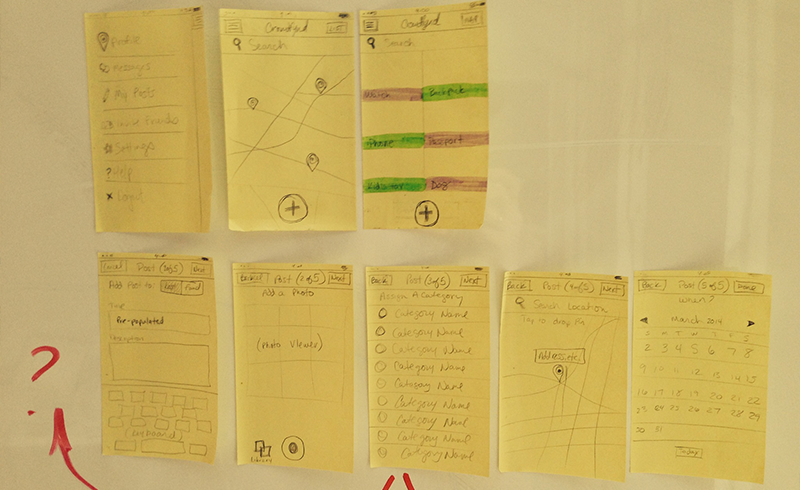 Profile
Messages
My Posts
Invite Friends
Settings
? Help
x Logout
Crowdfynd
LIST
Search
Crowdfynd
Search
Watch
Backpack
Phone
Passport
Dog
Cancel
Post (1 of 5)
Next
Add Post to:
Lost
Found
Title
Pre-populated
Description
(Keyboard)
Back
Post (2 of 5)
Next
Add a Photo
(Photo Viewer)
Library
Back
Post (3 of 5)
Next
Assign A Category
Category Name
Category Name
Category Name
Category Name
Category Name
Category Name
Category Name
Category Name
Category Name
Back
Post (4 of 5)
Next
Search Location
Tap to drop Pin
Address, etc.
Back
Post (5 of 5)
Done
When?
March 2014
S M T W T F S
2 3 4 5 6 7 8
9 10 11 12 13 14 15
16 17 18 19 20 21 22
23 24 25 26 27 28 29
30 31
Today
?